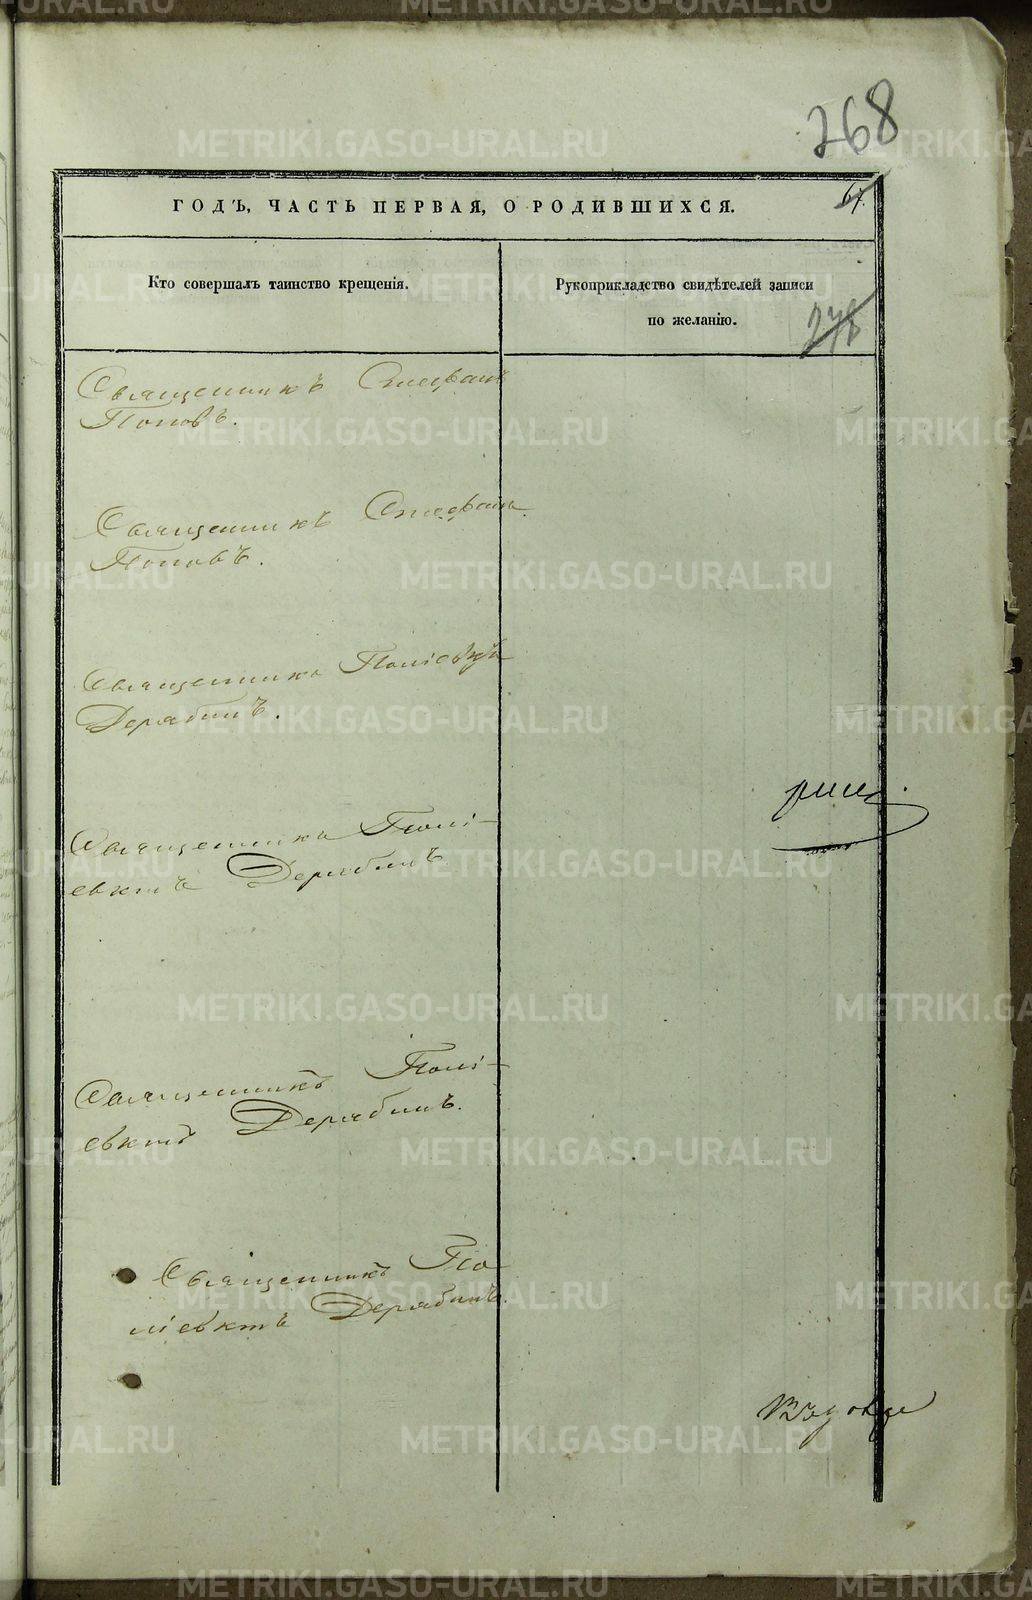 268
67.
ГОДЪ, ЧАСТЬ ПЕРВАЯ, О РОДИВШИХСЯ.
Кто совершалъ таинство крещенія.
Рукоприкладство свидѣтелей записи
по желанію.
278
Священникъ Стефанъ
Поповъ.
Священникъ Стефанъ
Поповъ.
Священникъ Поліевктъ
Дерябинъ.
Священникъ Полі-
евктъ Дерябинъ
Священникъ Полі-
евктъ Дерябинъ.
Священникъ По
ліевктъ Дерябинъ.
METRIKI.GASO-URAL.RU